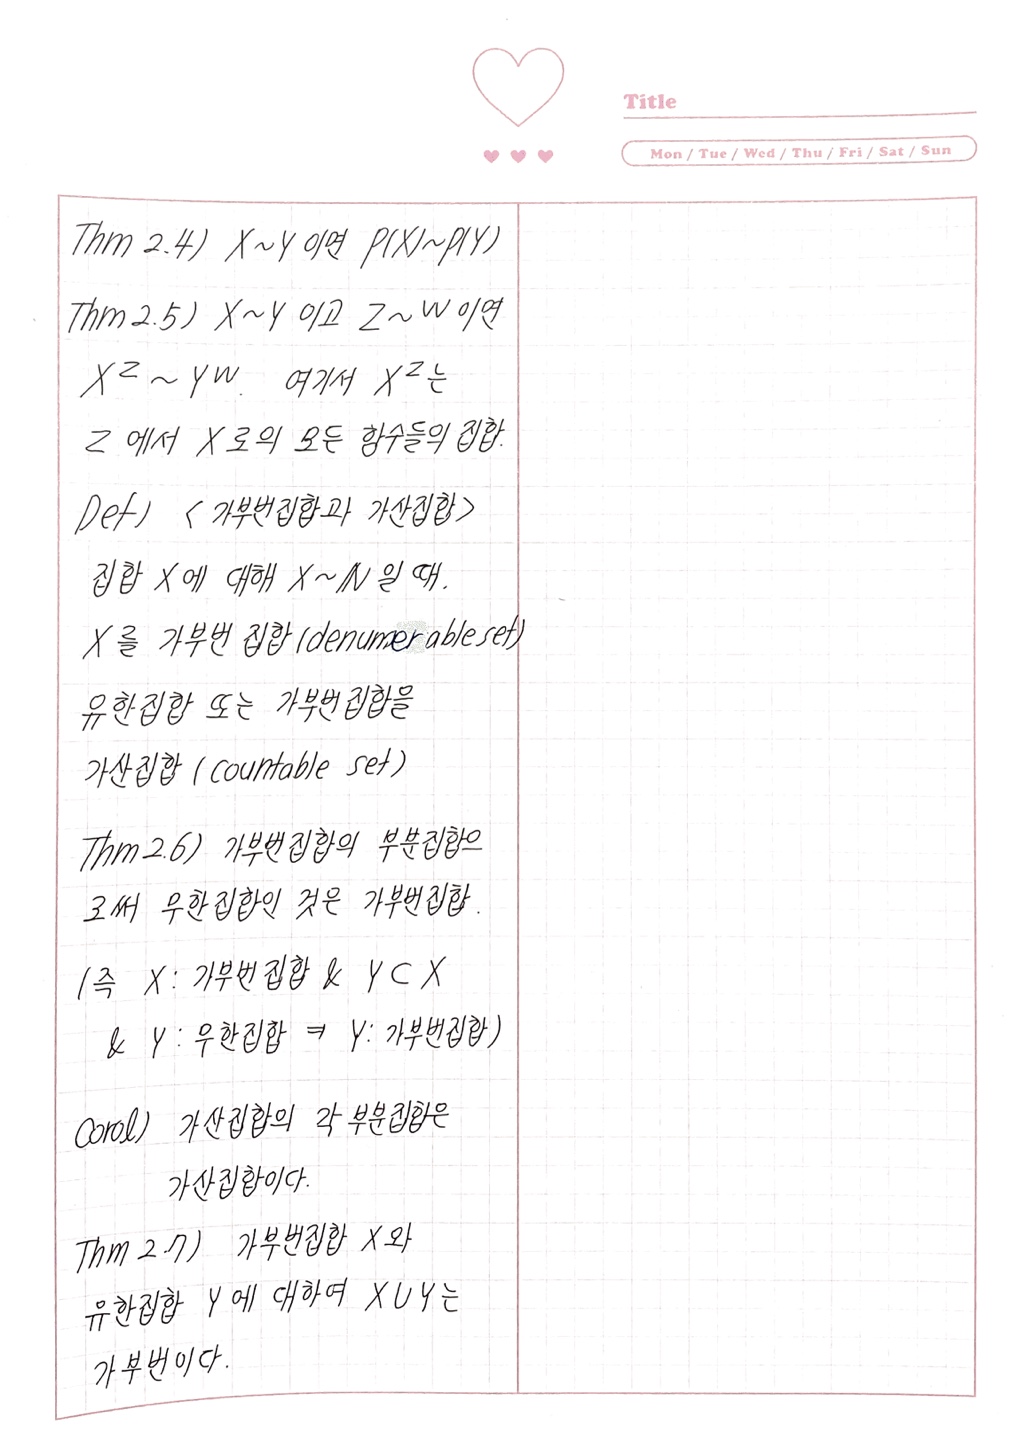 Title
Mon / Tue / Wed / Thu / Fri / Sat / Sun
Thm 2.4) X~Y 이면 P(X)~P(Y)
Thm 2.5) X~Y 이고 Z~W 이면
X^Z ~ Y^W. 여기서 X^Z는
Z 에서 X로의 모든 함수들의 집합.
Def) <가부번집합과 가산집합>
집합 X에 대해 X~ℕ일 때.
X를 가부번 집합(denumerable set)
유한집합 또는 가부번집합을
가산집합 (countable set)
Thm 2.6) 가부번집합의 부분집합으
로써 무한집합인 것은 가부번집합.
(즉 X: 가부번집합 & Y⊂X
& Y: 무한집합 ⇒ Y: 가부번집합)
Corol) 가산집합의 각 부분집합은
가산집합이다.
Thm 2.7) 가부번집합 X와
유한집합 Y에 대하여 X∪Y는
가부번이다.